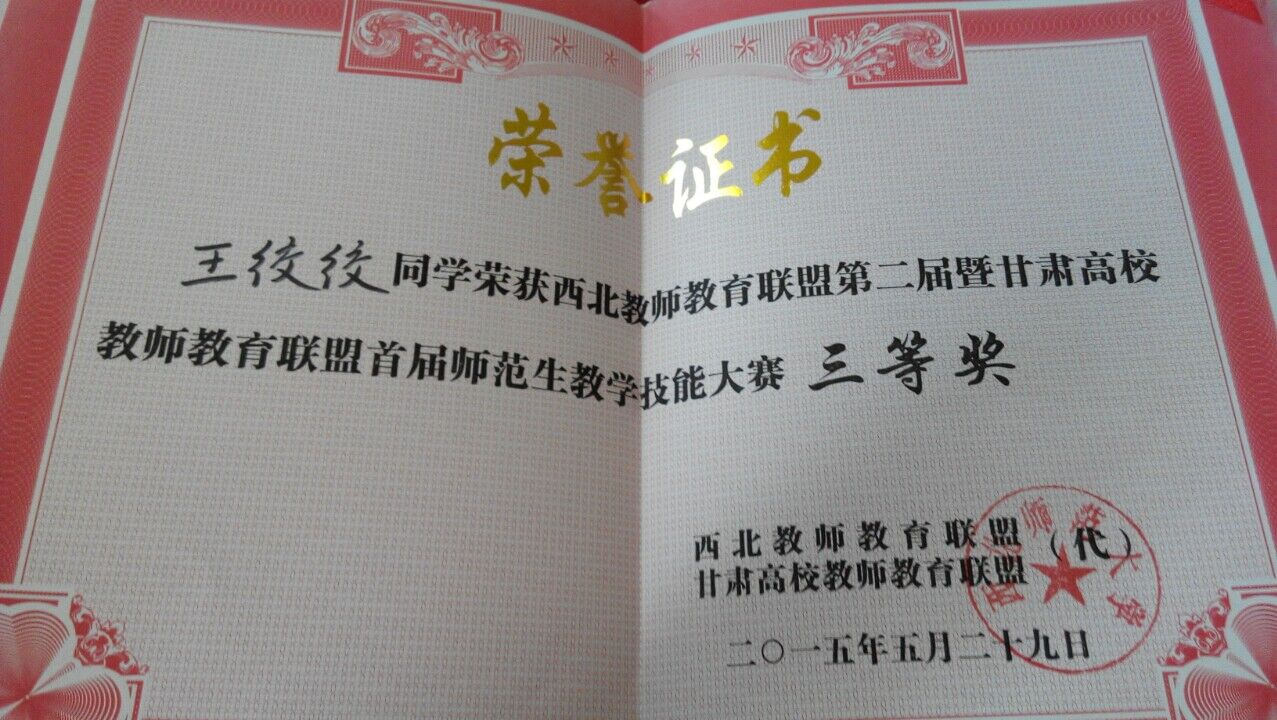 荣誉证书
王绞绞同学荣获西北教师教育联盟第二届暨甘肃高校
教师教育联盟首届师范生教学技能大赛 三等奖
西北教师教育联盟
甘肃高校教师教育联盟
（代）
西北师范大学
二〇一五年五月二十九日